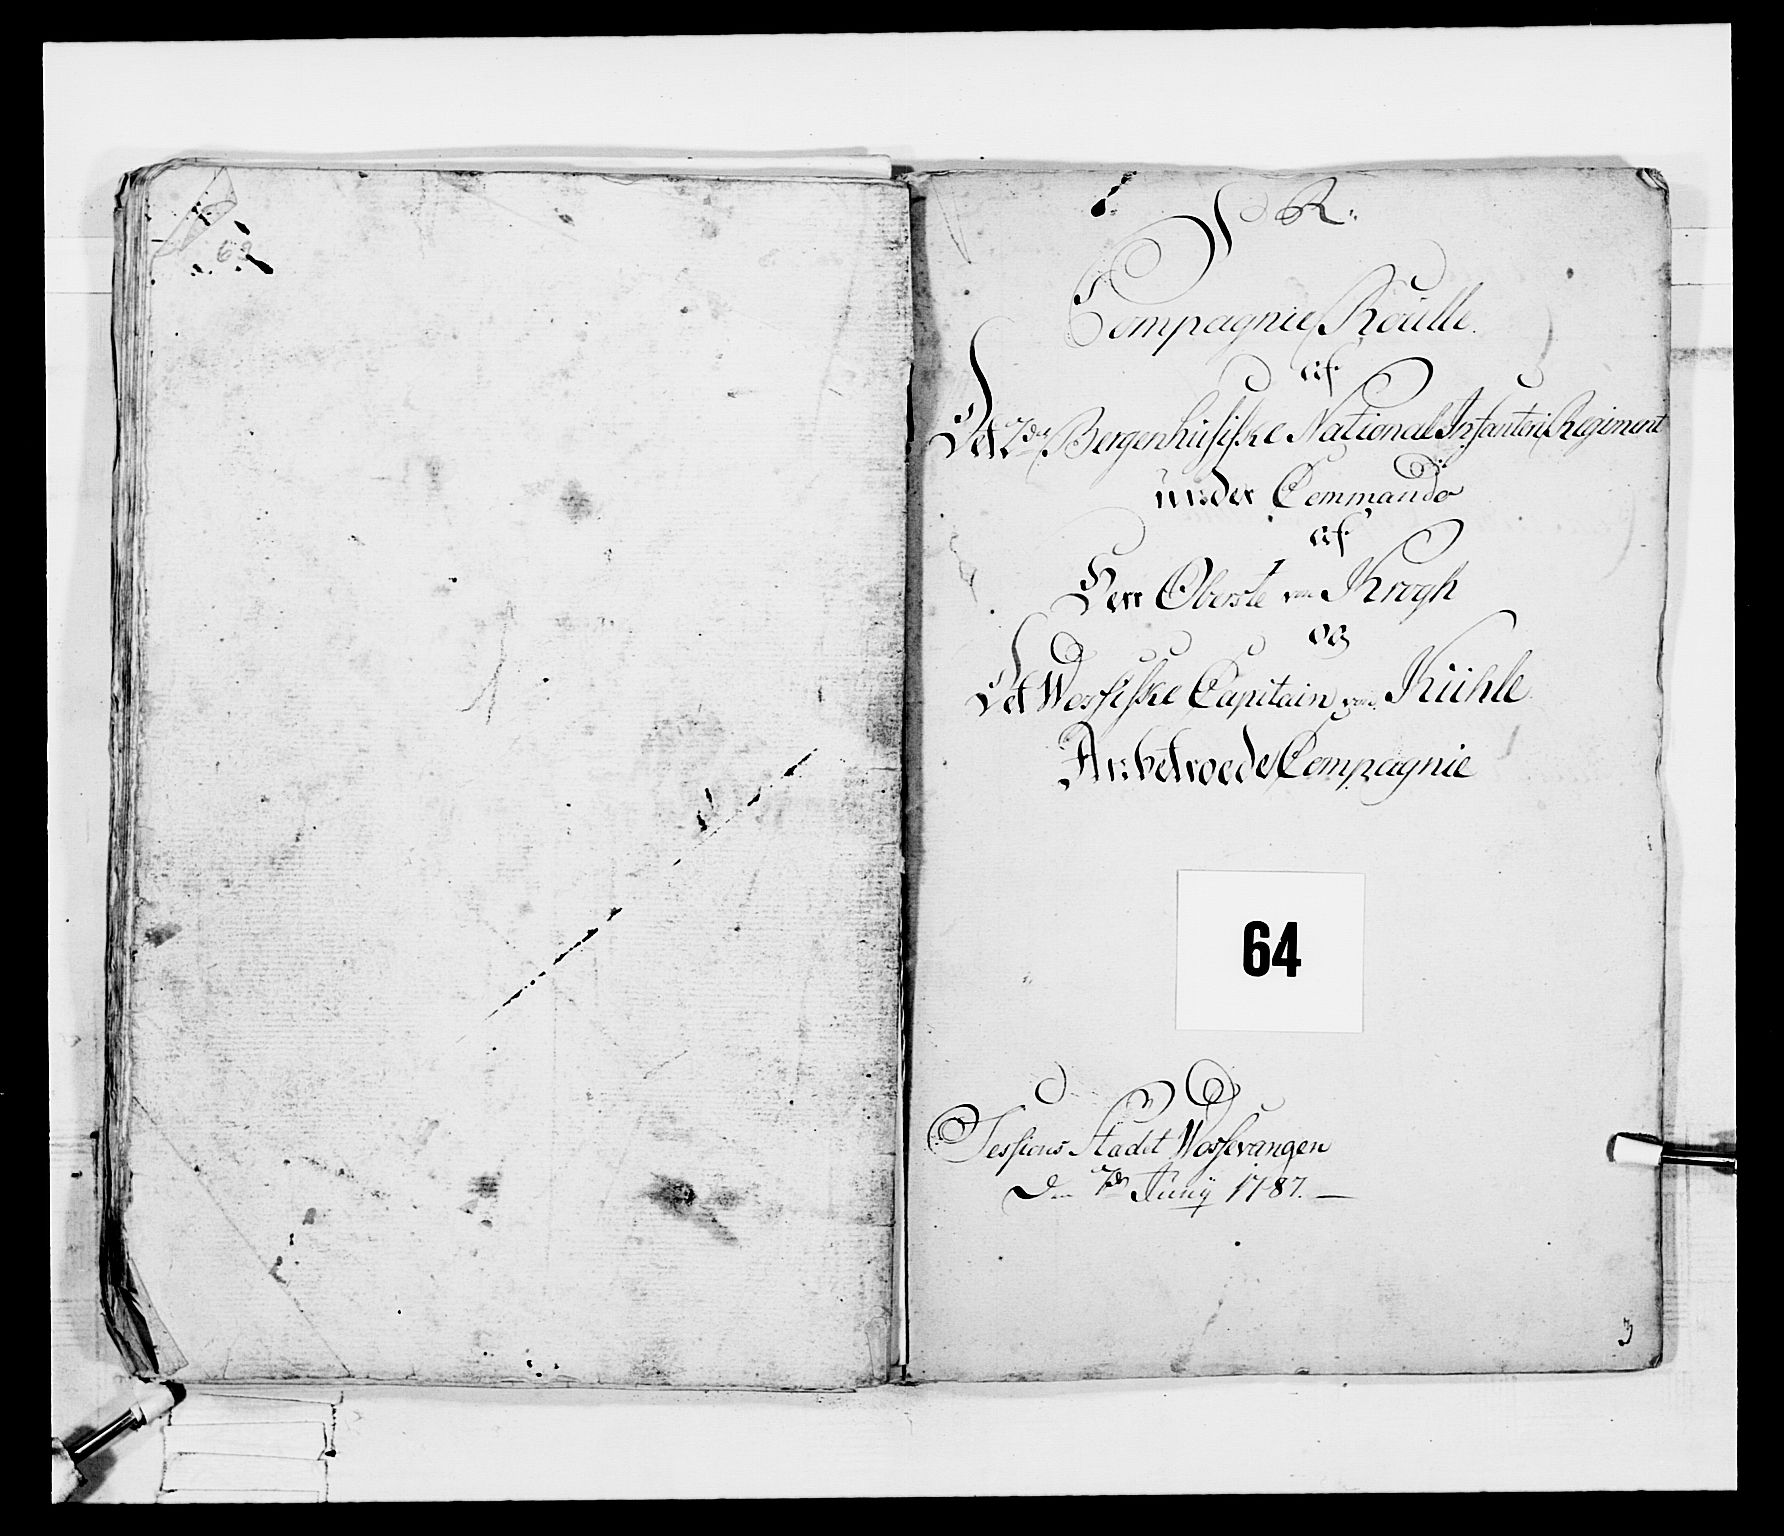 S R:
Compagnie Roulle.
af
Det 2de Bergenhusiske National Infanterie Regiment
under Commando
af
Herr Oberste von Krogh
og
Det Wossiske Capitain von Kühle
Anbetroede Compagnie
64
Sessions Stædet Wossevangen
Den 7de Junÿ 1787.
3